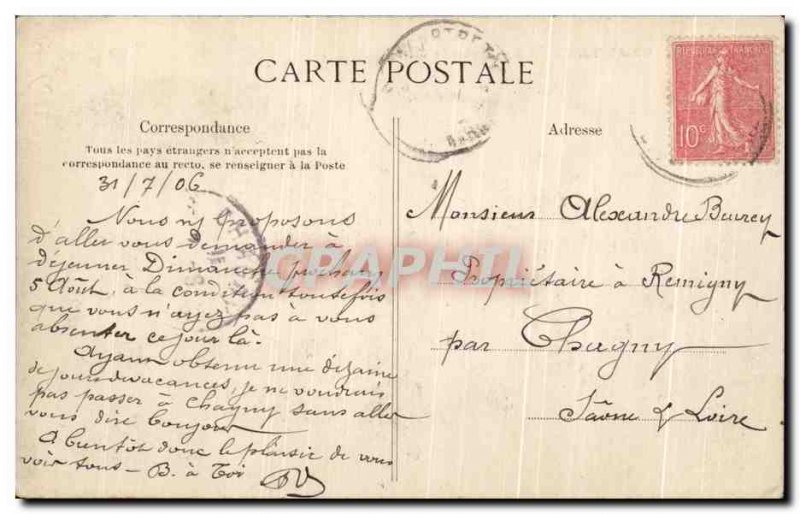 CARTE POSTALE
REPUBLIQUE FRANÇAISE
10c
Correspondance
Tous les pays étrangers n'acceptent pas la
correspondance au recto, se renseigner à la Poste
Adresse
31/7/06
Nous ns proposons
d'aller vous demander à
déjeuner Dimanche prochain
5 Août, à la condition toutefois
que vous n'ayez pas à vous
absenter ce jour là.
Ayant obtenu une dizaine
de jours de vacances, je ne voudrais
pas passer à Chagny sans aller
vous dire bonjour
A bientôt donc le plaisir de vous
voir tous - B. à Toi
Monsieur Alexandre
Propriétaire à Remigny
par Chagny
Saône & Loire
CPAPHIL